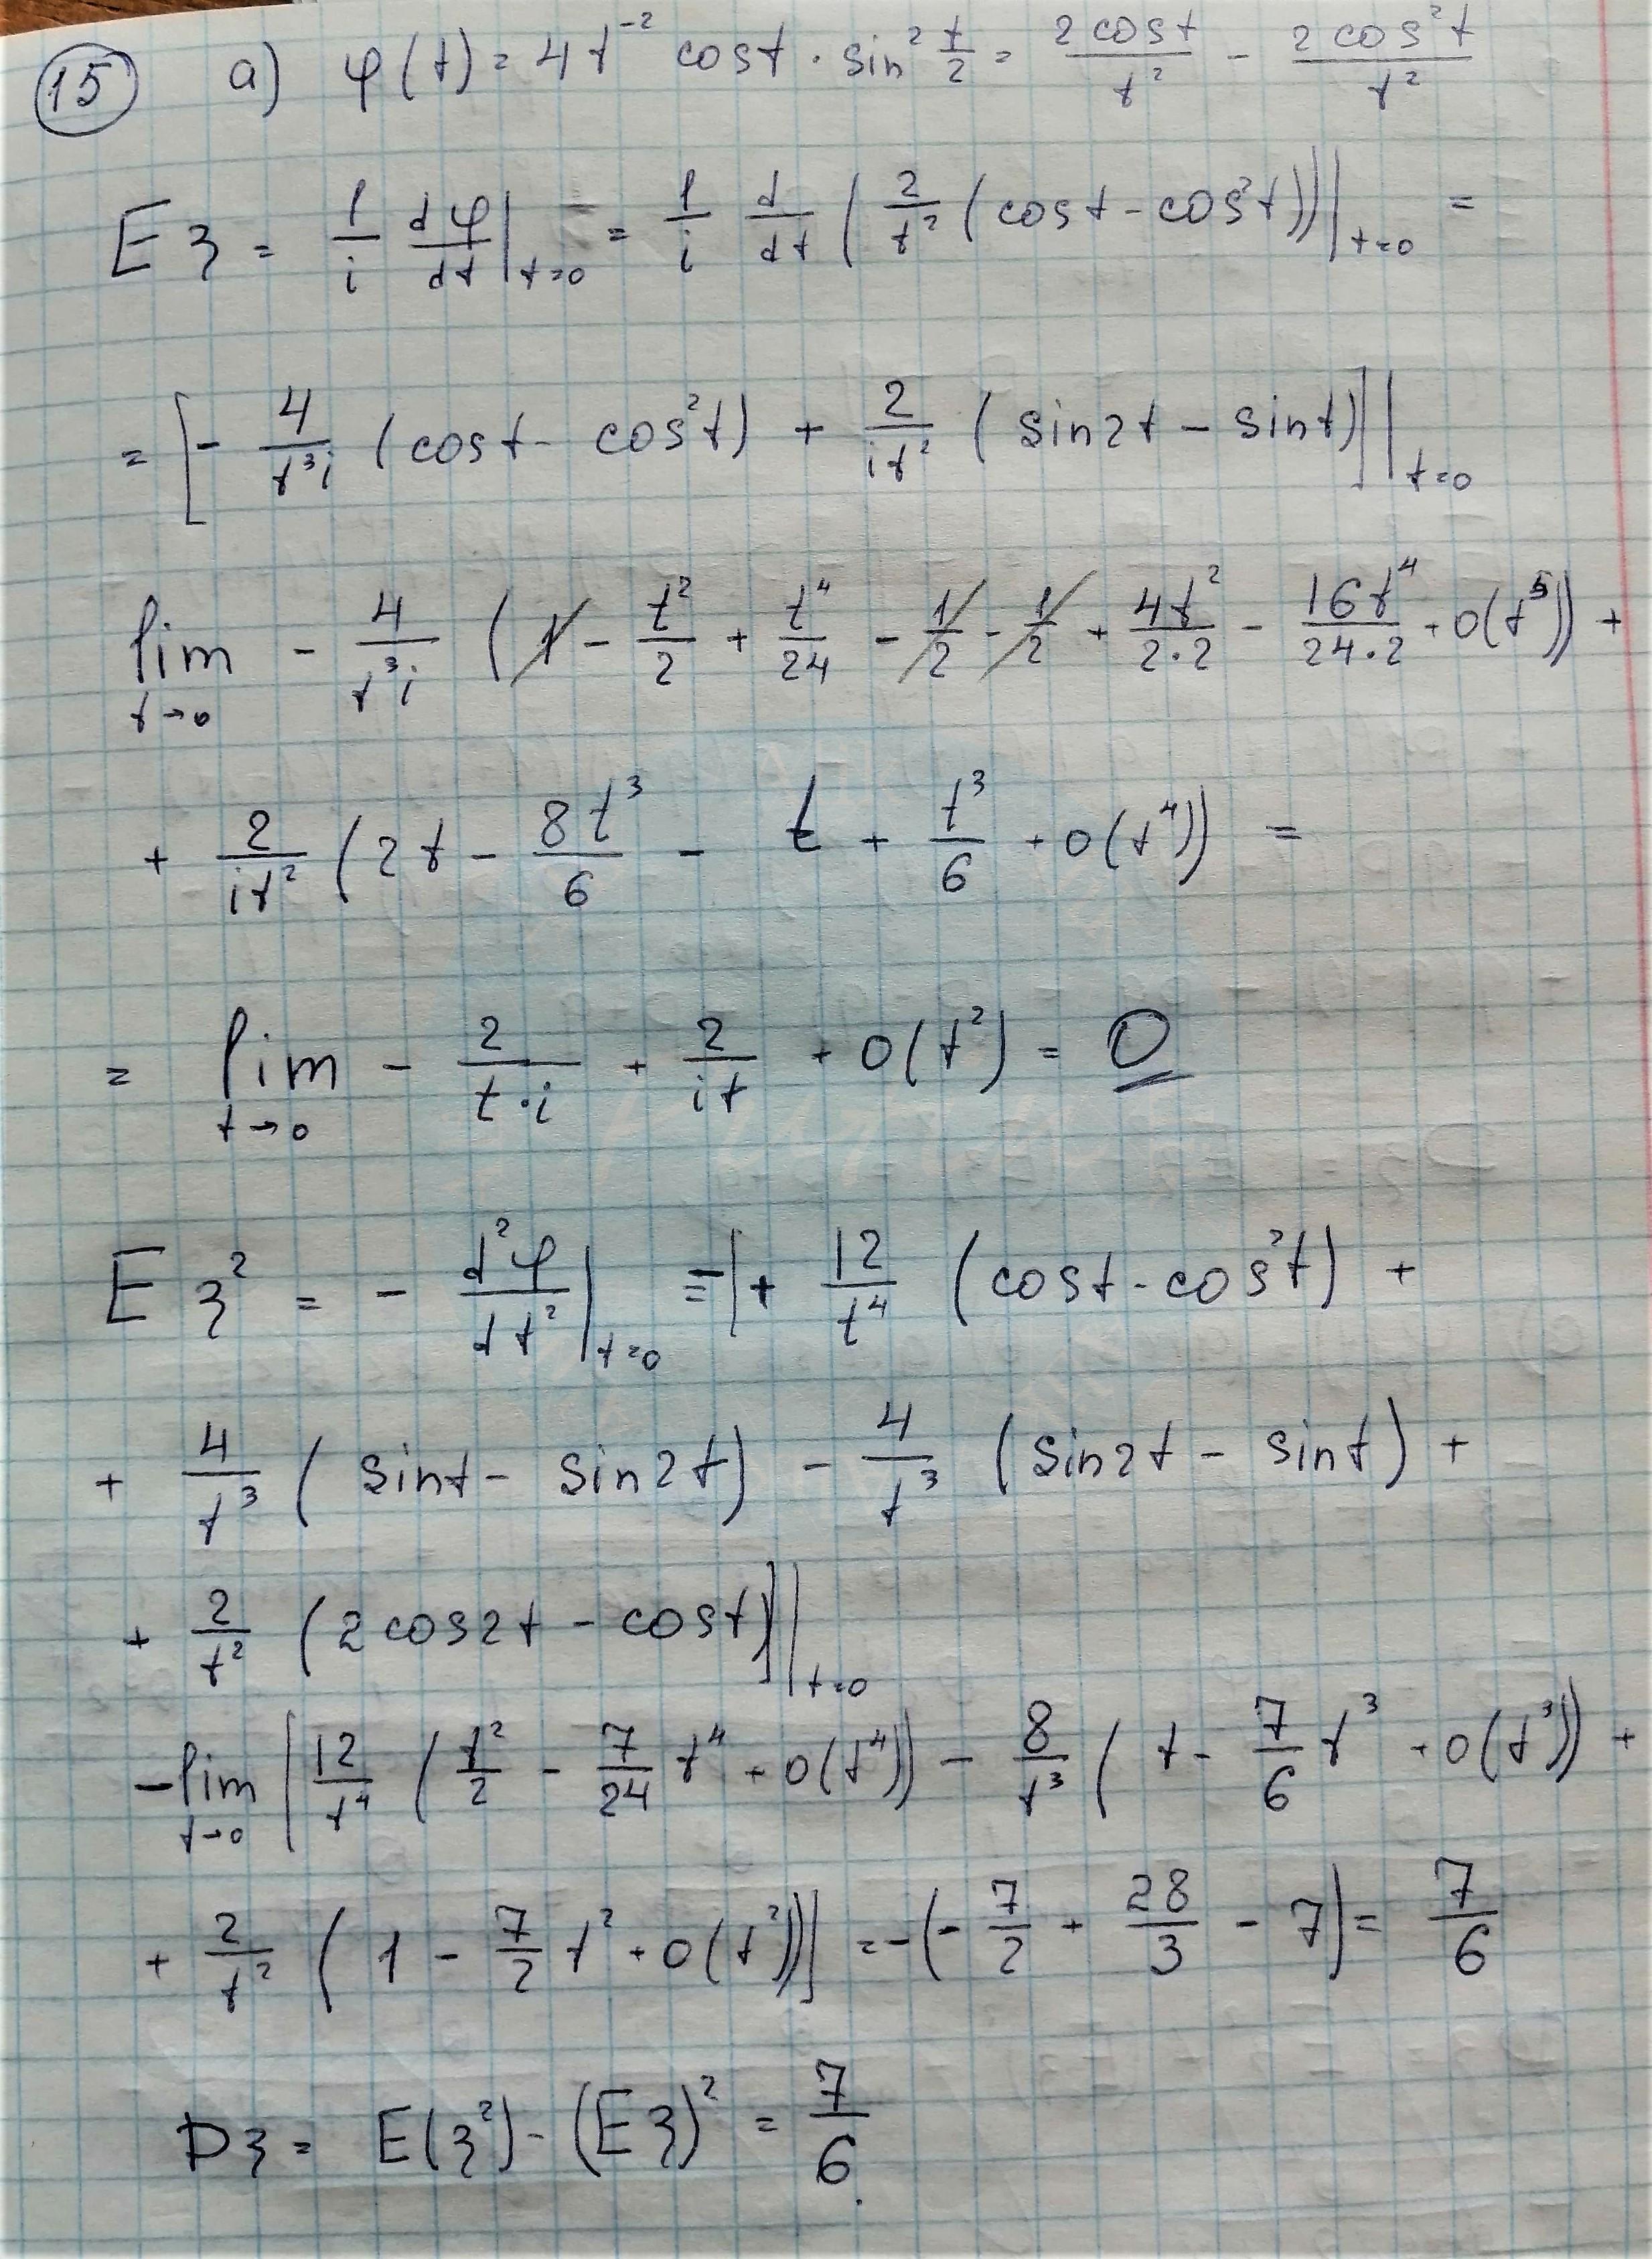 15 а) φ(t) = 4t⁻² cos t · sin² t/2 = 2cos t/t² - 2cos²t/t²
Eξ = 1/i dφ/dt|t=0 = 1/i d/dt (2/t² (cos t - cos²t))|t=0 =
= [- 4/t³i (cos t - cos²t) + 2/it² (sin2t - sin t)]|t=0
lim t→0 - 4/t³i (1 - t²/2 + t⁴/24 - 1/2 - 1/2 + 4t²/2·2 - 16t⁴/24·2 + o(t⁵)) +
+ 2/it² (2t - 8t³/6 - t + t³/6 + o(t⁴)) =
= lim t→0 - 2/t·i + 2/it + o(t²) = 0
Eξ² = - d²φ/dt²|t=0 = -[+ 12/t⁴ (cos t - cos²t) +
+ 4/t³ (sin t - sin2t) - 4/t³ (sin2t - sin t) +
+ 2/t² (2cos2t - cos t)]|t=0
-lim t→0 [12/t⁴ (t²/2 - 7/24 t⁴ + o(t⁴)) - 8/t³ (t - 7/6 t³ + o(t³)) +
+ 2/t² (1 - 7/2 t² + o(t²))] = -(- 7/2 + 28/3 - 7) = 7/6
Dξ = E(ξ²) - (Eξ)² = 7/6.